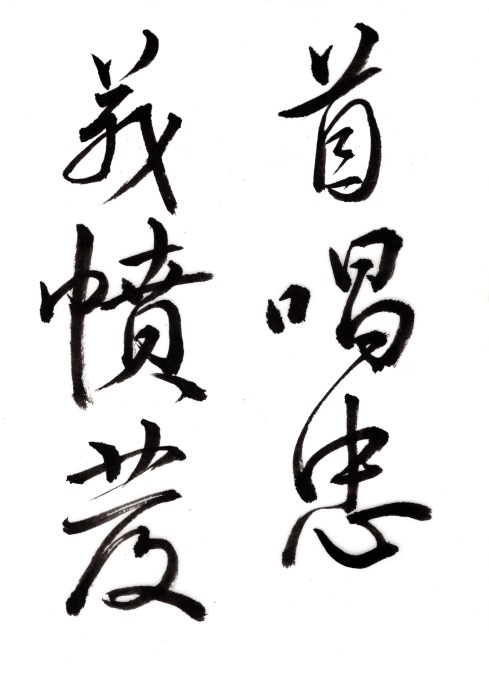 首唱忠
義憤發